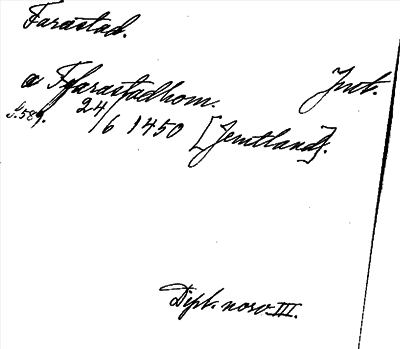 Farastad.
a Ffarastadhom. Jmt.
s. 589. 24/6 1450 [Jemtland].
Dipl. norv. III.